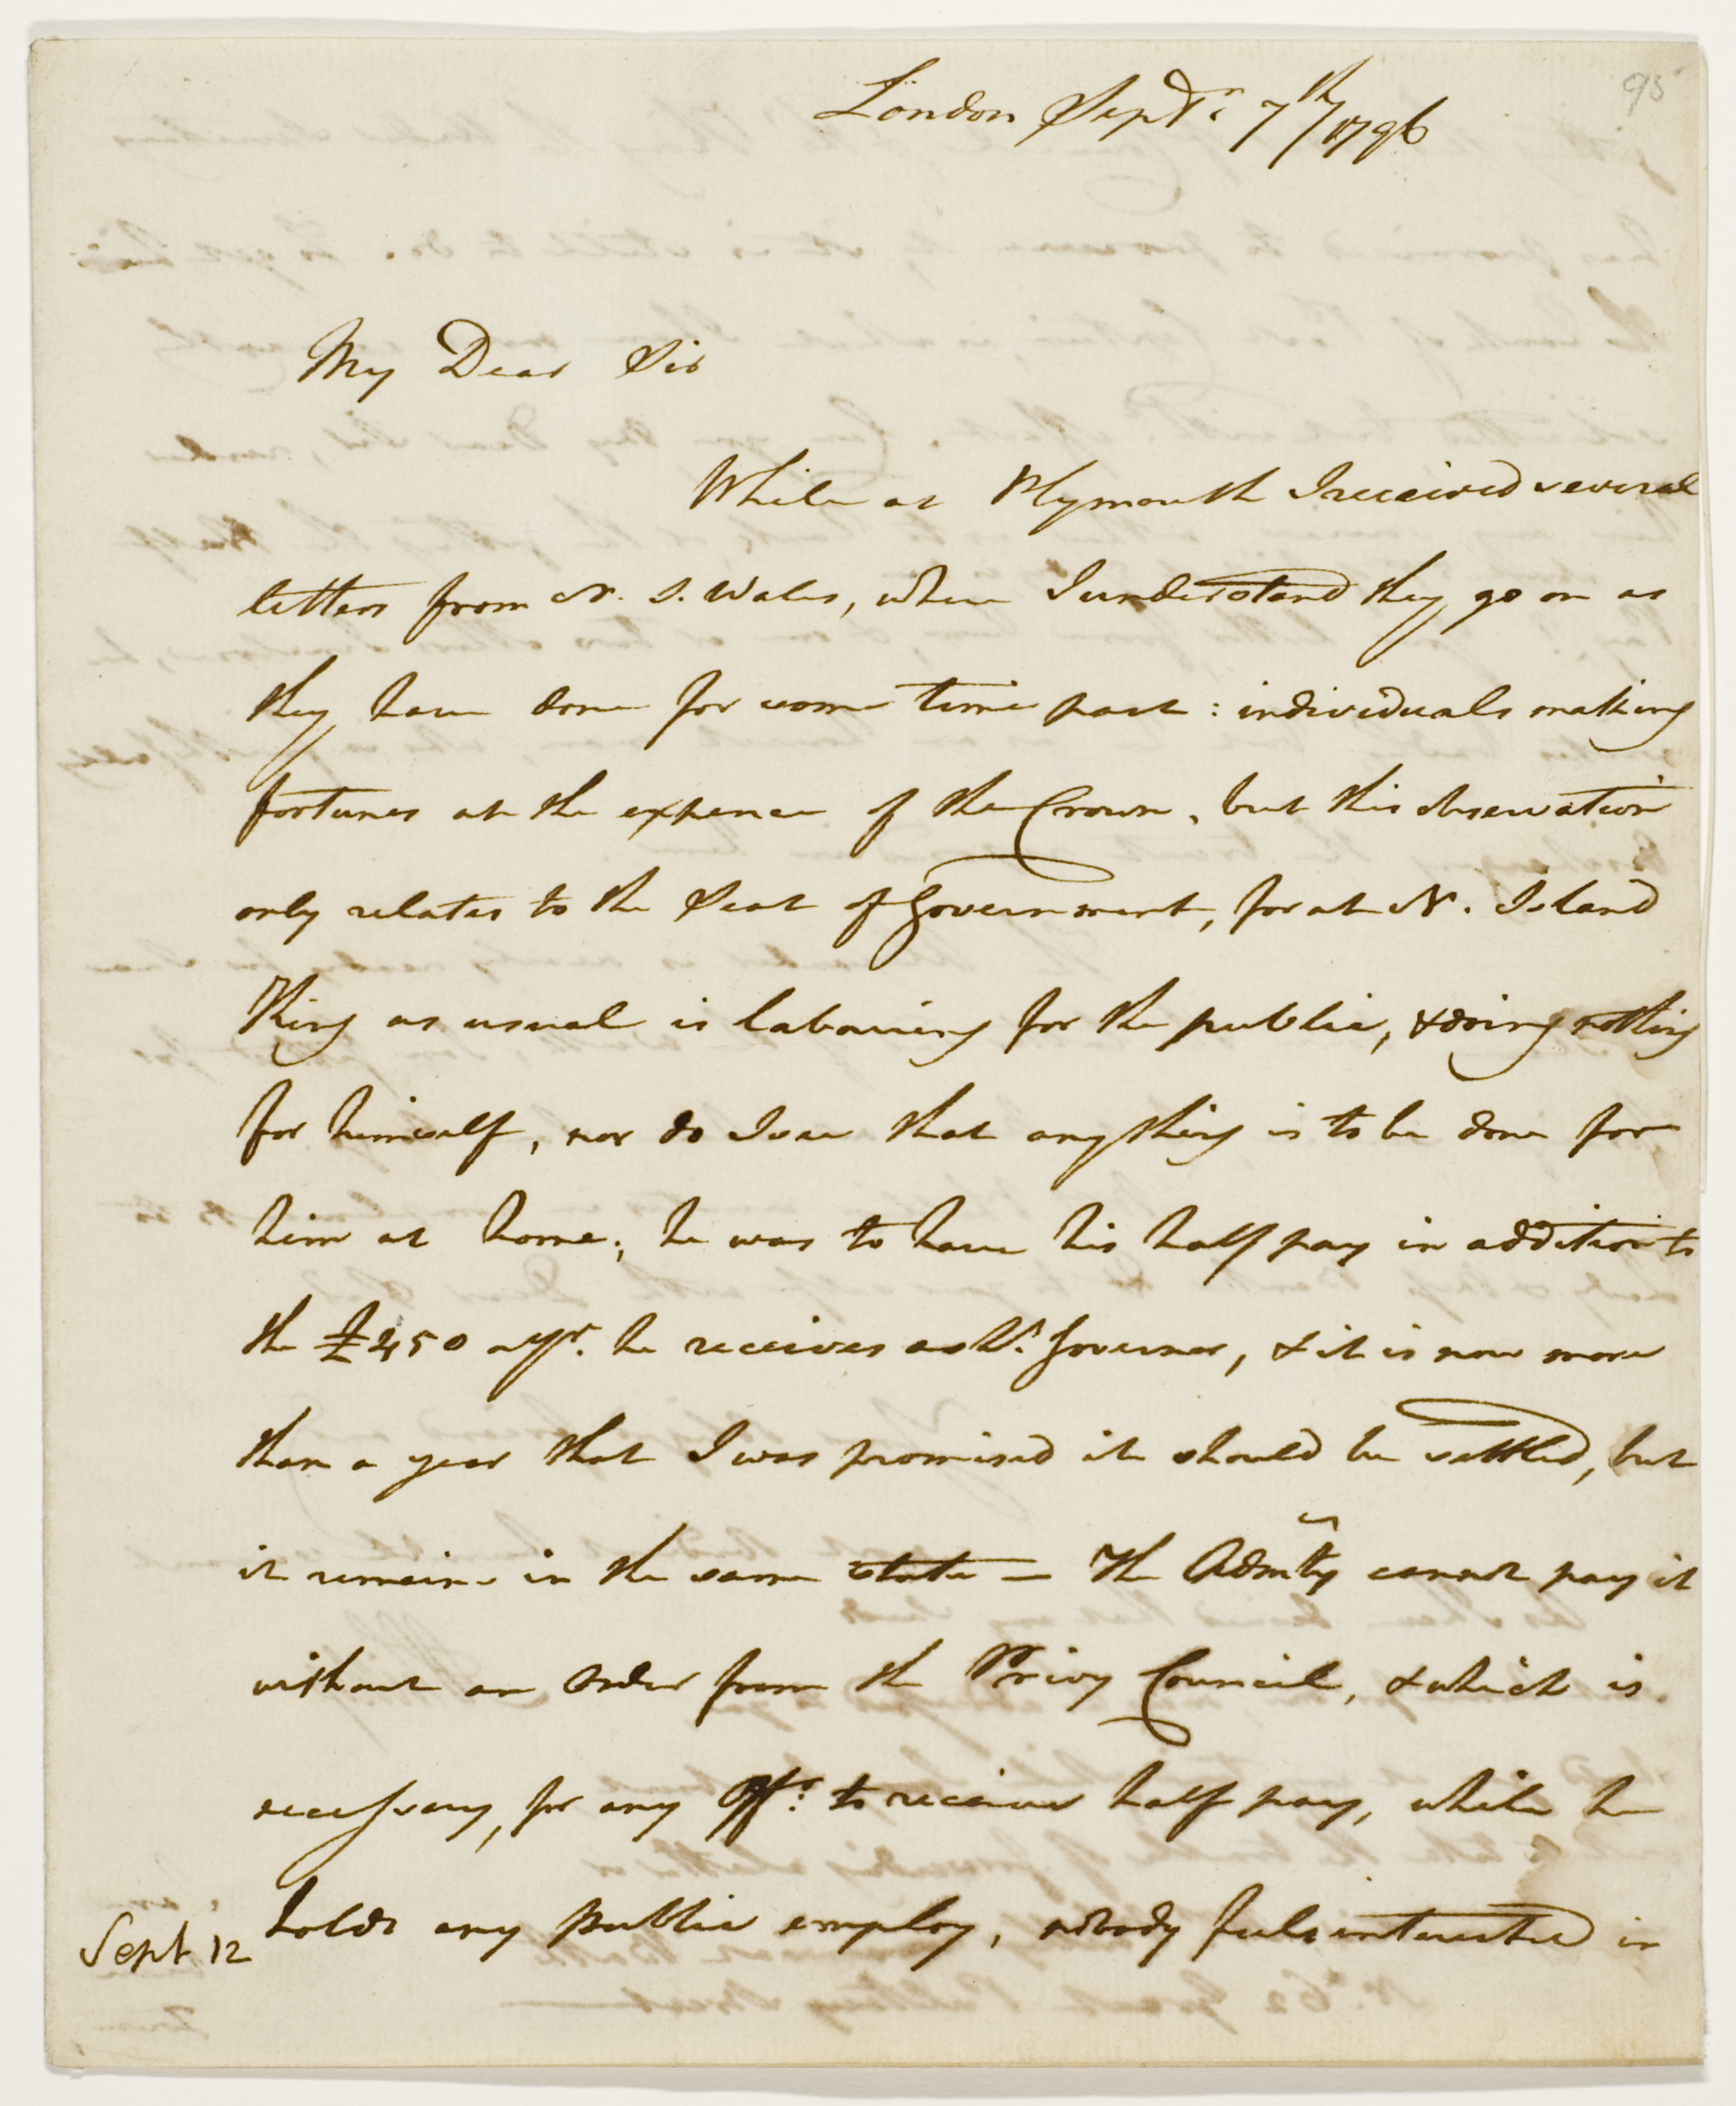 95
London Septr. 7th/1796
My Dear Sir
While at Plymouth I received several
letters from N. S. Wales, where I understand they go on as
they have done for some time past: individuals making
fortunes at the expence of the Crown, but this observation
only relates to the Seat of Government, for at N. Island
King as usual is labouring for the public, & doing nothing
for himself, nor do I see that any thing is to be done for
him at home; he was to have his half pay in addition to
the £250 a yr. he receives as Lt. Governor, & it is now more
than a year that I was promised it should be settled, but
it remains in the same state — The Admlty cannot pay it
without an Order from the Privy Council, & which is
necessary, for any Offr. to receive half pay, while he
holds any public employ, nobody feels interested in
Sept 12